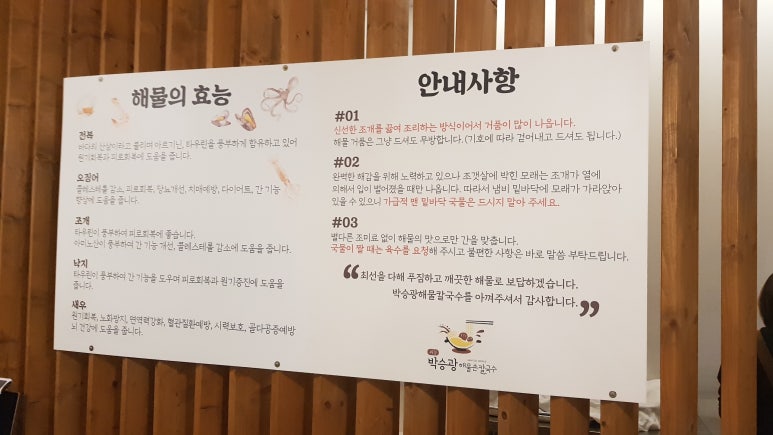 해물의 효능
전복
바다의 산삼이라고 불리며 아르기닌, 타우린을 풍부하게 함유하고 있어
원기회복과 피로회복에 도움을 줍니다.
오징어
콜레스테롤 감소, 피로회복, 당뇨개선, 치매예방, 다이어트, 간 기능
향상에 도움을 줍니다.
조개
타우린이 풍부하여 피로회복에 좋습니다.
아미노산이 풍부하여 간 기능 개선, 콜레스테롤 감소에 도움을 줍니다.
낙지
타우린이 풍부하여 간 기능을 도우며 피로회복과 원기증진에 도움을
줍니다.
새우
원기회복, 노화방지, 면역력강화, 혈관질환예방, 시력보호, 골다공증예방
뇌 건강에 도움을 줍니다.
안내사항
#01
신선한 조개를 끓여 조리하는 방식이어서 거품이 많이 나옵니다.
해물 거품은 그냥 드셔도 무방합니다.(기호에 따라 걷어내고 드셔도 됩니다.)
#02
완벽한 해감을 위해 노력하고 있으나 조갯살에 박힌 모래는 조개가 열에
의해서 입이 벌어졌을 때만 나옵니다. 따라서 냄비 밑바닥에 모래가 가라앉아
있을 수 있으니 가급적 맨 밑바닥 국물은 드시지 말아 주세요.
#03
별다른 조미료 없이 해물의 맛으로만 간을 맞춥니다.
국물이 짤 때는 육수를 요청해 주시고 불편한 사항은 바로 말씀 부탁드립니다.
“최선을 다해 푸짐하고 깨끗한 해물로 보답하겠습니다.
박승광해물칼국수를 아껴주셔서 감사합니다.”
박승광 해물손칼국수